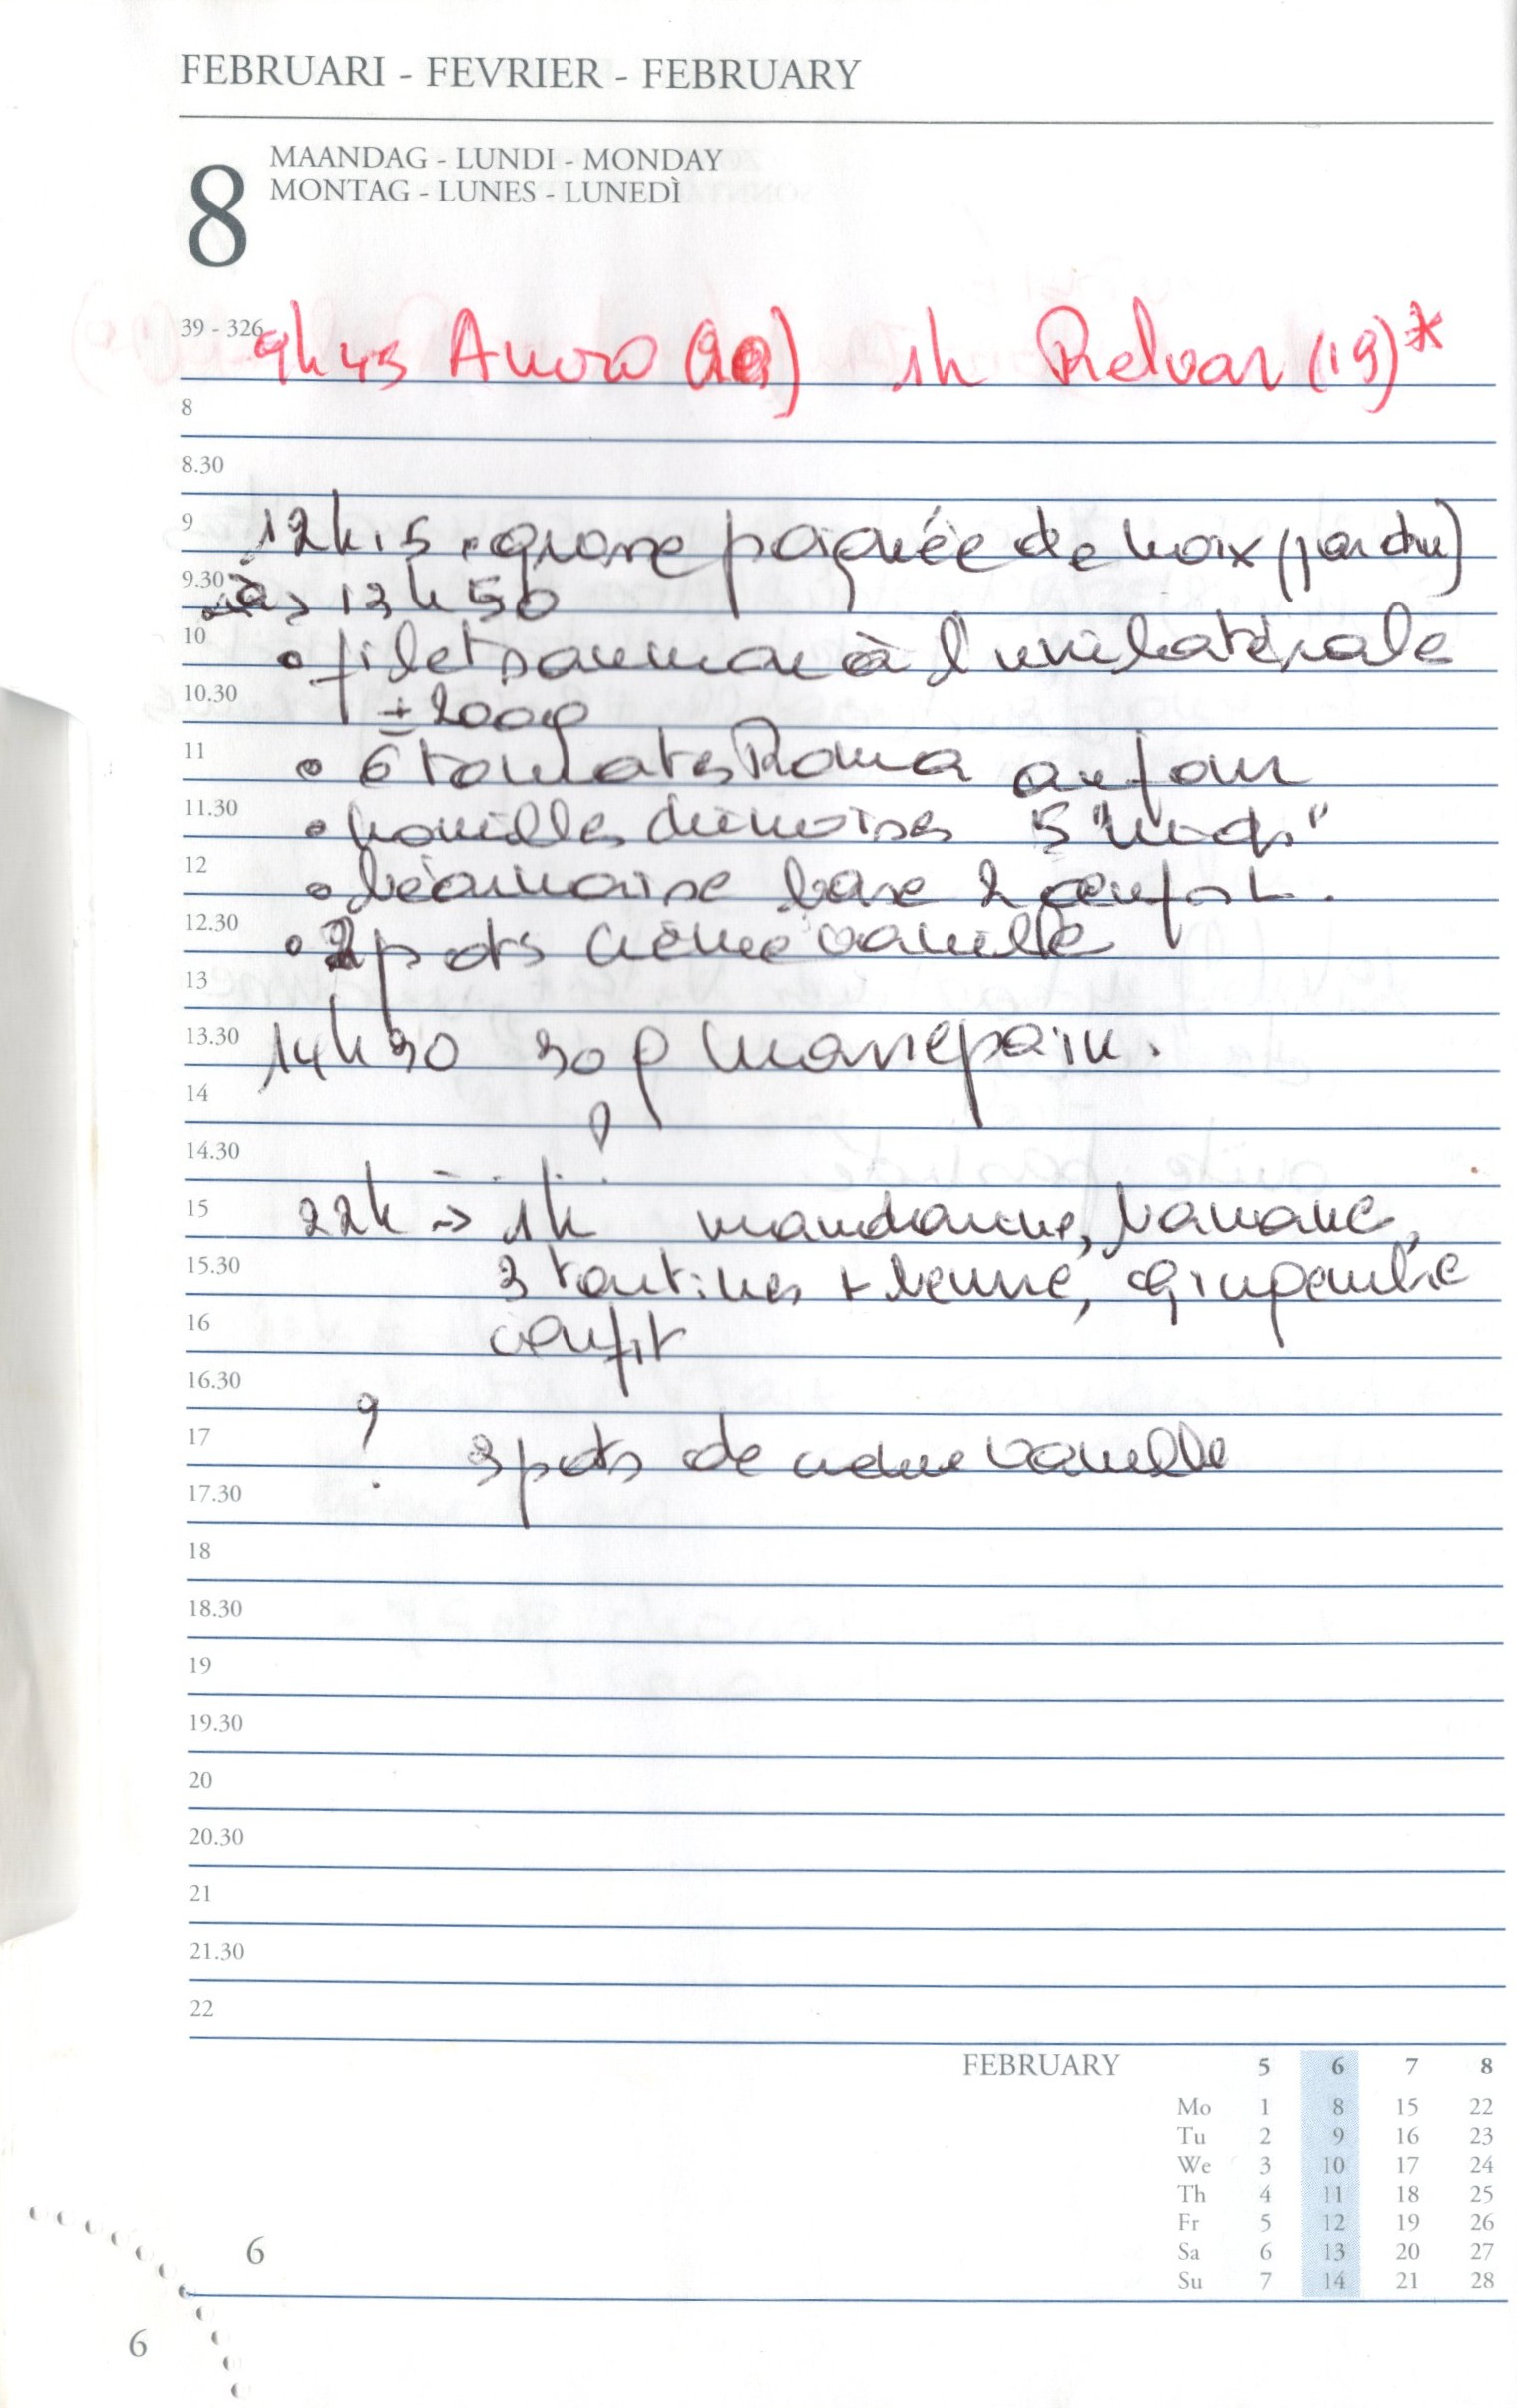 FEBRUARI - FEVRIER - FEBRUARY
8
MAANDAG - LUNDI - MONDAY
MONTAG - LUNES - LUNEDÌ
39 - 326
9h45 (20) 1h Relvar (19)*
8
8.30
9
12h15 • grosse poignée de noix (jardin)
9.30
à > 13h50
10
• filet saumon à l'unilatérale
10.30
± 200g
11
• 6 tomates Roma au four
11.30
• nouilles chinoises 5 "nids"
12
• béarnaise base 2 œufs
12.30
• 2 pots crème vanille
13
13.30
14h30 50g massepain.
14
14.30
?
15
22h -> 1h mandarine, banane,
15.30
3 tartines + beurre, gingembre
16
confit
16.30
17
? 3 pots de crème vanille
17.30
18
18.30
19
19.30
20
20.30
21
21.30
22
FEBRUARY 5 6 7 8
Mo 1 8 15 22
Tu 2 9 16 23
We 3 10 17 24
Th 4 11 18 25
Fr 5 12 19 26
Sa 6 13 20 27
Su 7 14 21 28
6
6